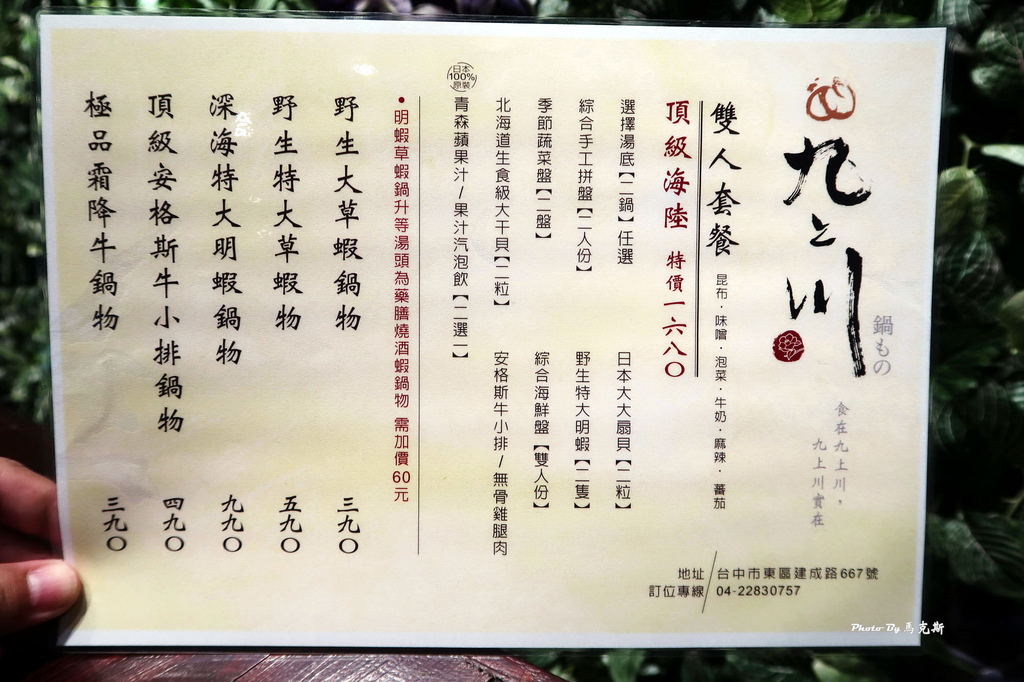 九上川
鍋もの
食在九上川，
九上川實在
雙人套餐
昆布·味噌·泡菜·牛奶·麻辣·蕃茄
頂級海陸 特價一六八〇
選擇湯底【二鍋】任選
日本大大扇貝【二粒】
綜合手工拼盤【二人份】
野生特大明蝦【二隻】
季節蔬菜盤【二盤】
綜合海鮮盤【雙人份】
北海道生食級大干貝【二粒】
安格斯牛小排/無骨雞腿肉
日本
100%
原裝
青森蘋果汁/果汁汽泡飲【二選一】
•明蝦草蝦鍋升等湯頭為藥膳燒酒蝦鍋物 需加價60元
野生大草蝦鍋物 三九〇
野生特大草蝦物 五九〇
深海特大明蝦鍋物 九九〇
頂級安格斯牛小排鍋物 四九〇
極品霜降牛鍋物 三九〇
地址/台中市東區建成路667號
訂位專線/04-22830757
Photo By 馬克斯